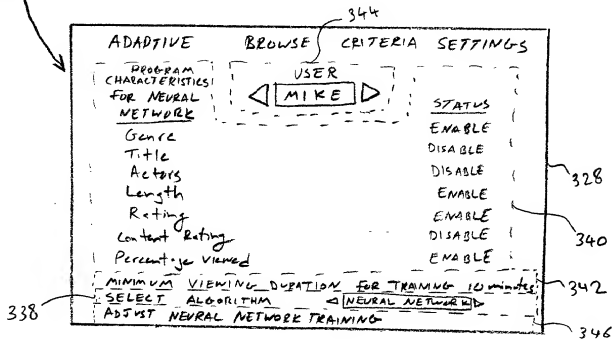 344
ADAPTIVE BROWSE CRITERIA SETTINGS
PROGRAM
CHARACTERISTICS
FOR NEURAL
NETWORK
USER
MIKE
STATUS
Genre ENABLE
Title DISABLE
Actors DISABLE
Length ENABLE
Rating ENABLE
Content Rating DISABLE
Percentage Viewed ENABLE
328
340
MINIMUM VIEWING DURATION FOR TRAINING 10 minutes
342
338
SELECT ALGORITHM NEURAL NETWORK
ADJUST NEURAL NETWORK TRAINING
346